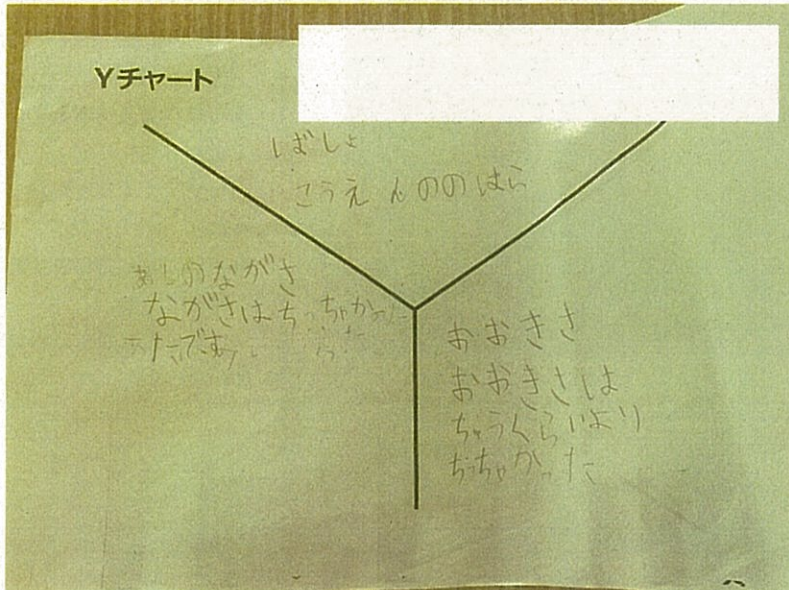 Yチャート
ばしょ
こうえんののはら
あしのながさ
ながさはちっちゃかっ
たです
おおきさ
おおきさは
ちゅうくらいより
ちっちゃかった